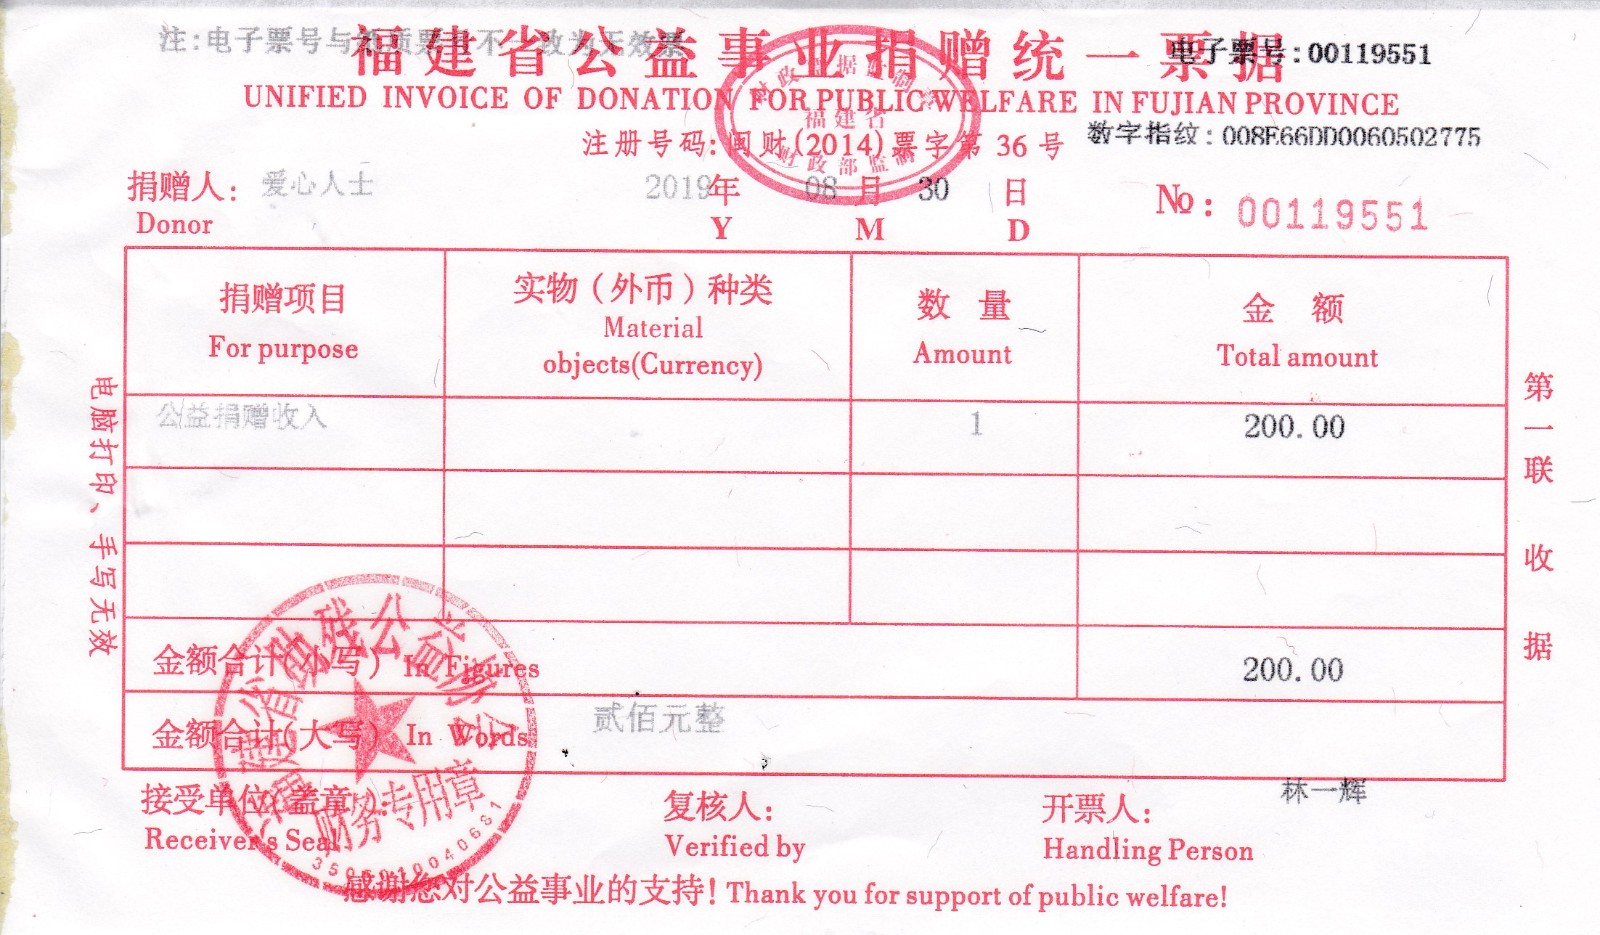 注:电子票号与纸质票号不一致为无效票
福建省公益事业捐赠统一票据
电子票号:00119551
UNIFIED INVOICE OF DONATION FOR PUBLIC WELFARE IN FUJIAN PROVINCE
注册号码:闽财(2014)票字第 36 号
数字指纹:008E66DD0060502775
福建省
财政部监制
捐赠人: 爱心人士 2019年 08月 30日
Donor Y M D
№: 00119551
捐赠项目 实物(外币)种类 数量 金额
For purpose Material objects(Currency) Amount Total amount
公益捐赠收入 1 200.00
金额合计(小写) In Figures 200.00
金额合计(大写) In Words 贰佰元整
接受单位(盖章): 复核人: 开票人: 林一辉
Receiver's Seal Verified by Handling Person
感谢您对公益事业的支持! Thank you for support of public welfare!
电脑打印、手写无效
第一联 收据
福建省助残公益协会
财务专用章